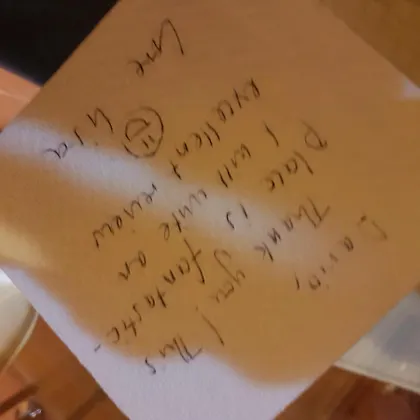 Dario,
Thank you! This
place is fantastic -
I will write an
excellent review
Love
Lisa